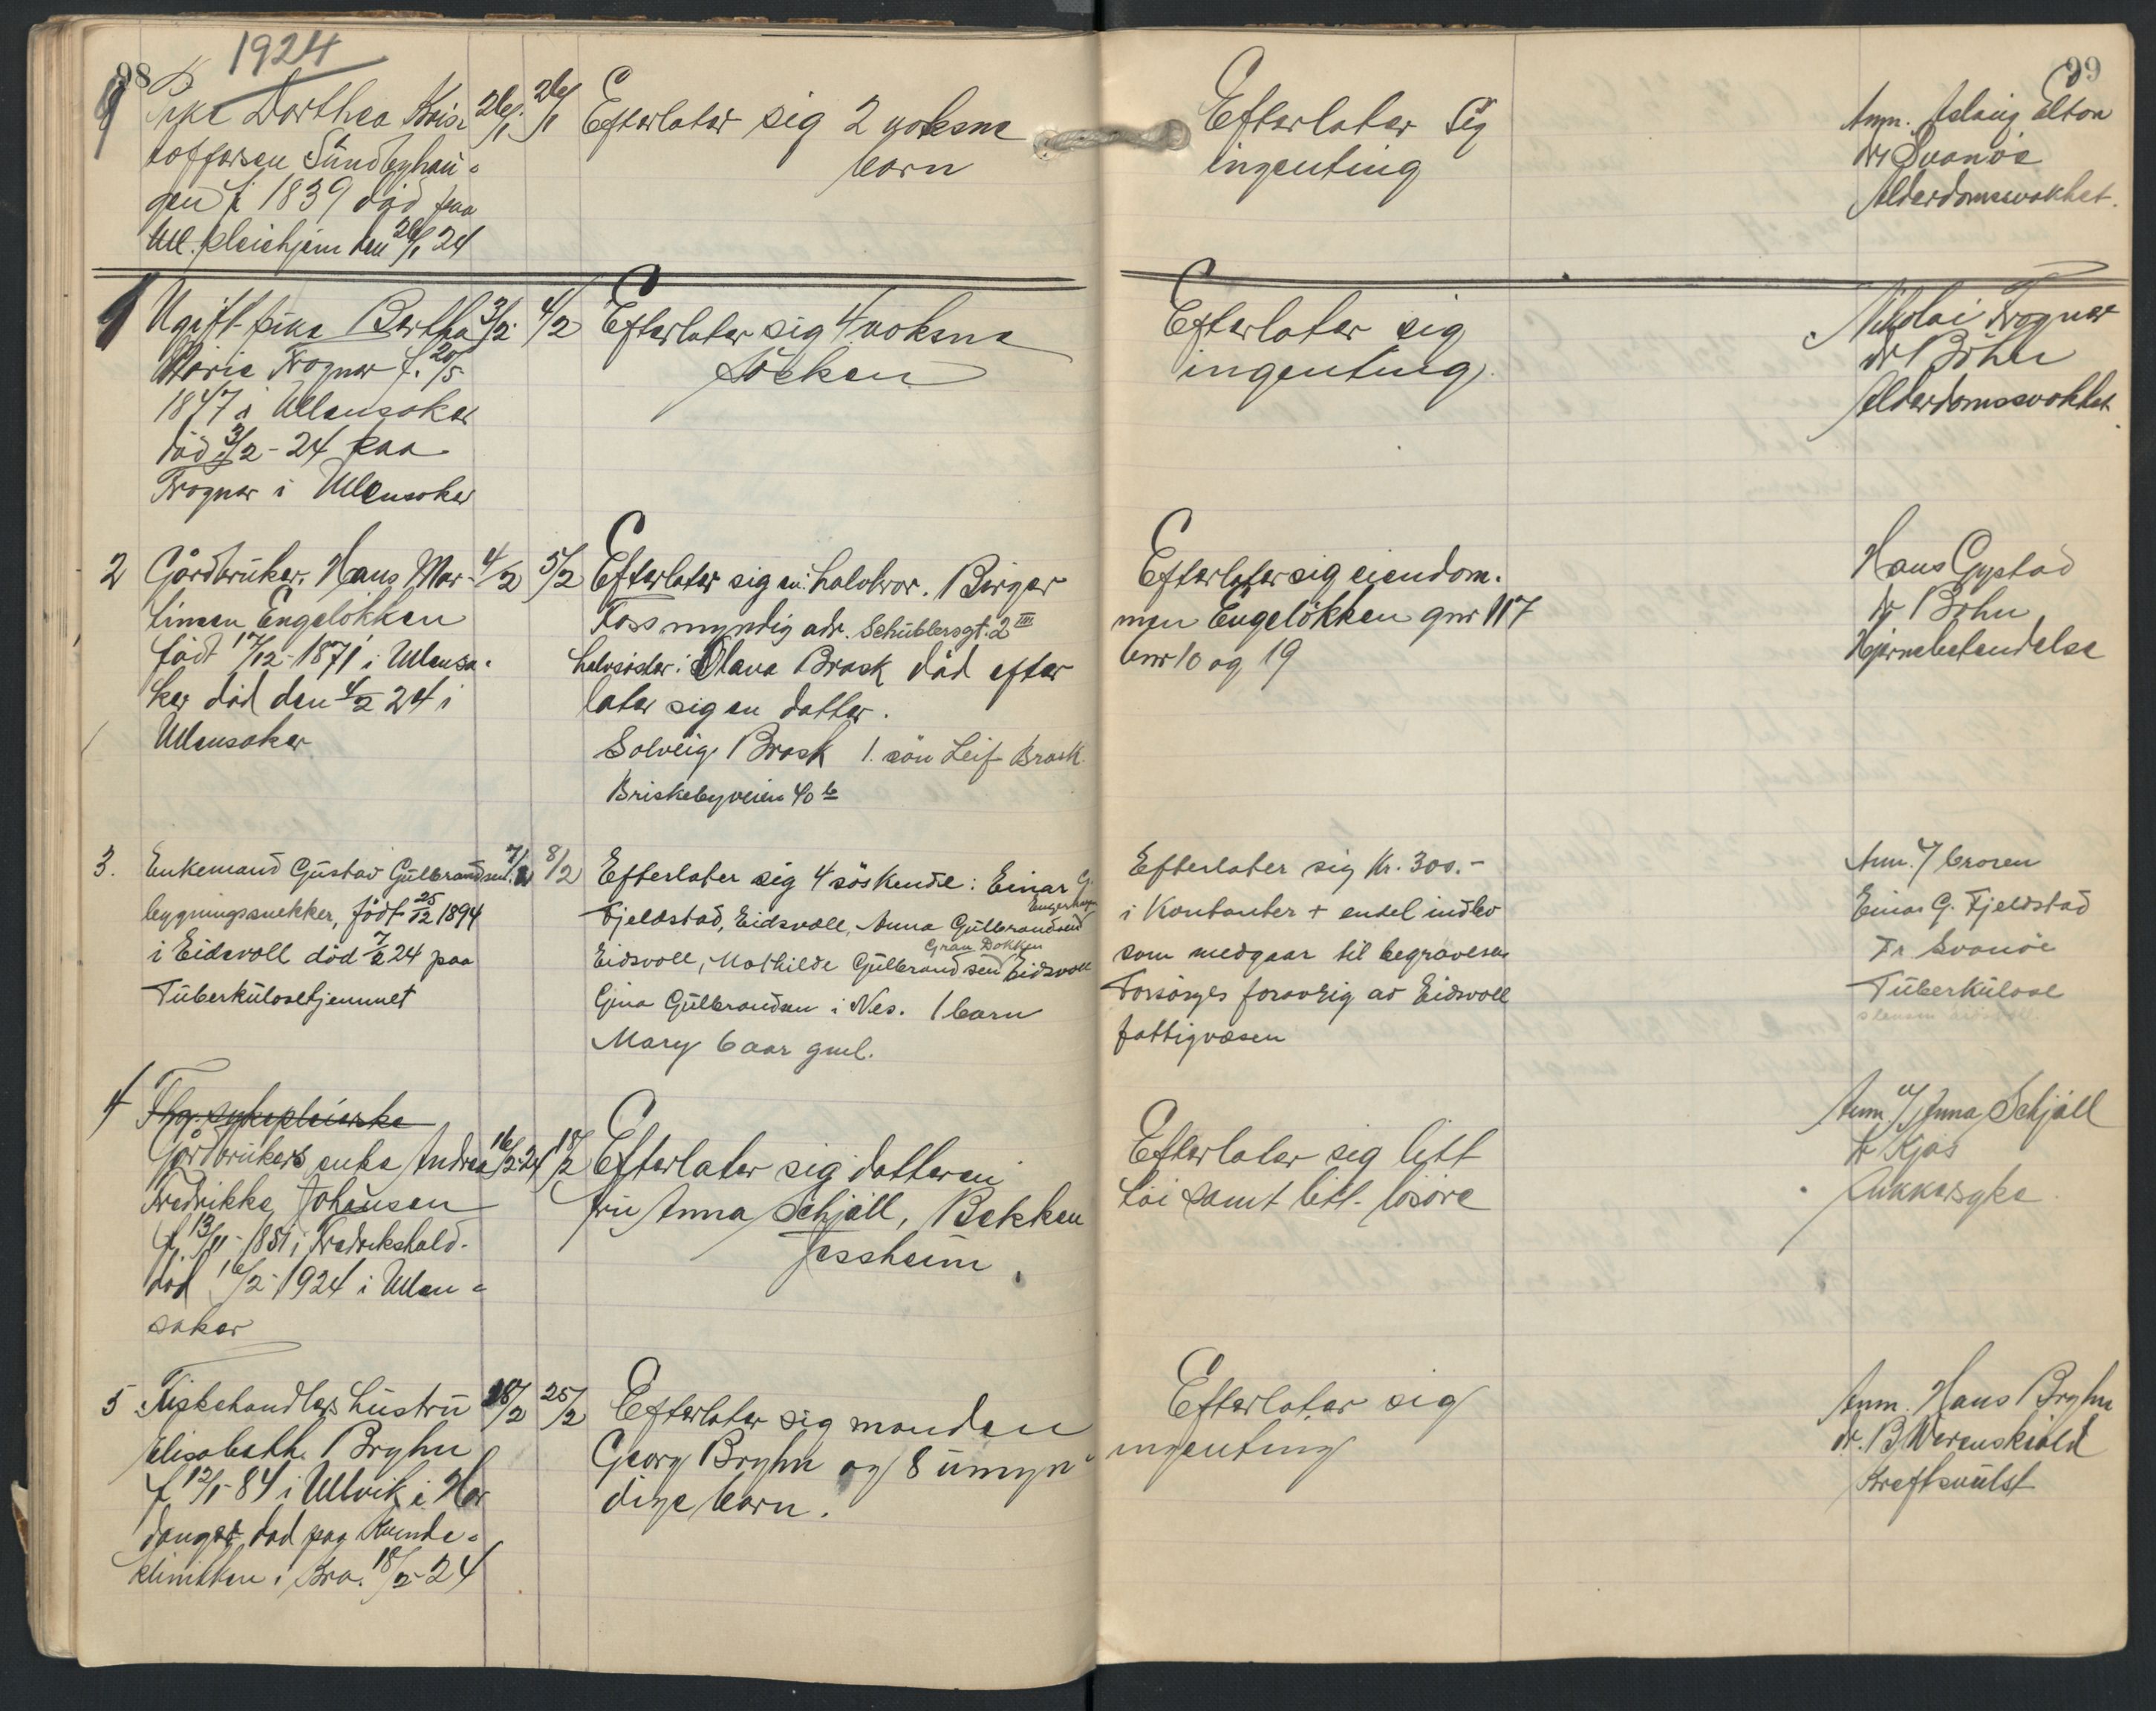 98
1924
9 Pike Dorthea Kris= 26/1 26/1 Efterlater sig 2 voksne
toffersen Sundbyhau= barn
gen f 1839 död paa
Ull. pleiehjem den 26/1 24
1 Ugift pike Bertha 3/2 4/2 Efterlater sig 4 voksne
Marie Trogner f. 20/5 söcken
1847 i Ullensaker
död 3/2 - 24 paa
Trogner i Ullensaker
2 Gårdbruker. Hans Mar- 4/2 5/2 Efterlater sig en: halvbror. Birger
tinsen Engelökken Foss myndig adr. Schüblersgt. 2 III
födt 17/12-1871 i Ullensa= halvsöster: Olava Brask död efter
ker död den 4/2 24 i later sig en datter.
Ullensaker Solveig Brask 1. sön Leif Brask.
Briskebyveien 40 b
3. Enkemand Gustav Gulbrandsen. 7/2 8/2 Efterlater sig 4 söskende: Einar G.
bygningssnekker, födt 25/12 1894 Fjeldstad, Eidsvoll, Anna Gulbrandsen
i Eidsvoll död 7/2 24 paa Gran Dokken
Eidsvoll, Mathilde Gulbrandsen Eidsvoll
Tuberkulosehjemmet Gina Gulbrandsen i Nes. 1 barn
Mary 6 aar gml.
4 Fhv. sykepleierske
Gårdbrukers enke Andrea 16/2-24 18/2 Efterlater sig datteren
Fredrikke Johansen fru Anna Schjöll, Bekken
f. 13/11-1851 i Fredrikshald. Jessheim.
död 16/2-1924 i Ullen=
saker
5 Fiskehandlers hustru 18/2 25/2 Efterlater sig manden
Elisabeth Bryhn Georg Bryhn og 8 umyn=
f 12/1-84 i Ullvik i Har dige barn.
danger död paa Kvinde=
klinikken i Kra. 18/2-24
99
Efterlater sig Anm. Aslaug Elton
ingenting dr Svanöe
Alderdomssvakhet.
Efterlater sig Nikolai Trogner
ingenting. dr Böhn
Alderdomssvakhet.
Efterlater sig eiendom. Hans Gystad
men Engelökken gnr 117 dr Böhn
bnr 10 og 19 Hjernebetendelse
Efterlater sig Kr. 300.- Anm. v/ broren
i Kontanter + endel indbo Einar G. Fjeldstad
som medgaar til begravelsen Dr Svanöe
Forsörges foravrig av Eidsvoll Tuberkulose
fattigvæsen
Anm v/ Anna Schjöll
Efterlater sig litt dr Kjos
töi samt litt lösöre Sukkersyke.
Efterlater sig Anm. Hans Bryhn
ingenting dr. B Werenskiold
Kreftsvulst